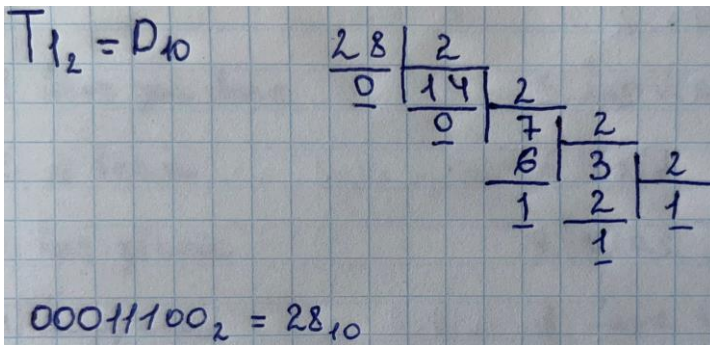 T₁₂ = D₁₀
28 | 2
0 14 | 2
0 7 | 2
6 3 | 2
1 2 1
1
00011100₂ = 28₁₀